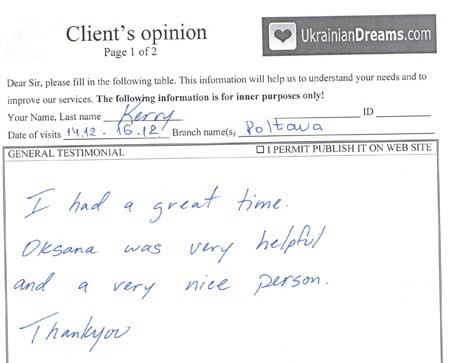 Client's opinion
Page 1 of 2
UkrainianDreams.com
Dear Sir, please fill in the following table. This information will help us to understand your needs and to
improve our services. The following information is for inner purposes only!
Your Name, Last name Kerry ID
Date of visits 14.12 - 16.12 Branch name(s) Poltava
GENERAL TESTIMONIAL I PERMIT PUBLISH IT ON WEB SITE
I had a great time.
Oksana was very helpful
and a very nice person.
Thankyou